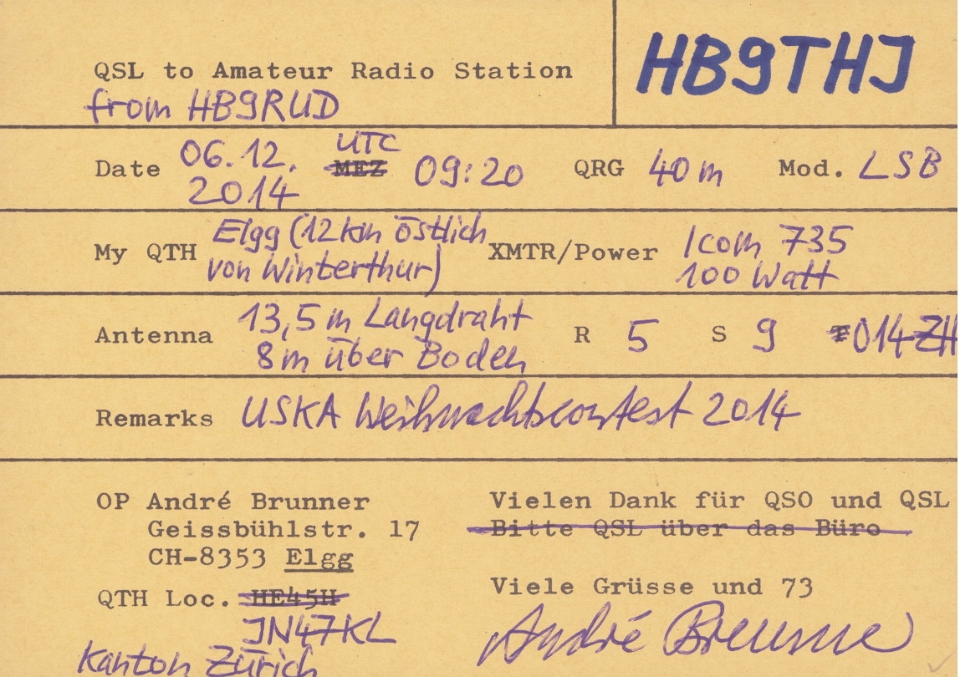 HB9THJ
QSL to Amateur Radio Station
from HB9RUD
Date 06.12. 2014 MEZ UTC 09:20 QRG 40m Mod. LSB
My QTH Elgg (12km östlich von Winterthur) XMTR/Power Icom 735 100 Watt
Antenna 13,5m Langdraht 8m über Boden R 5 S 9 014 ZH
Remarks USKA Weihnachtscontest 2014
OP André Brunner
Geissbühlstr. 17
CH-8353 Elgg
QTH Loc. HE45H
JN47KL
Kanton Zürich
Vielen Dank für QSO und QSL
Bitte QSL über das Büro
Viele Grüsse und 73
André Brunner